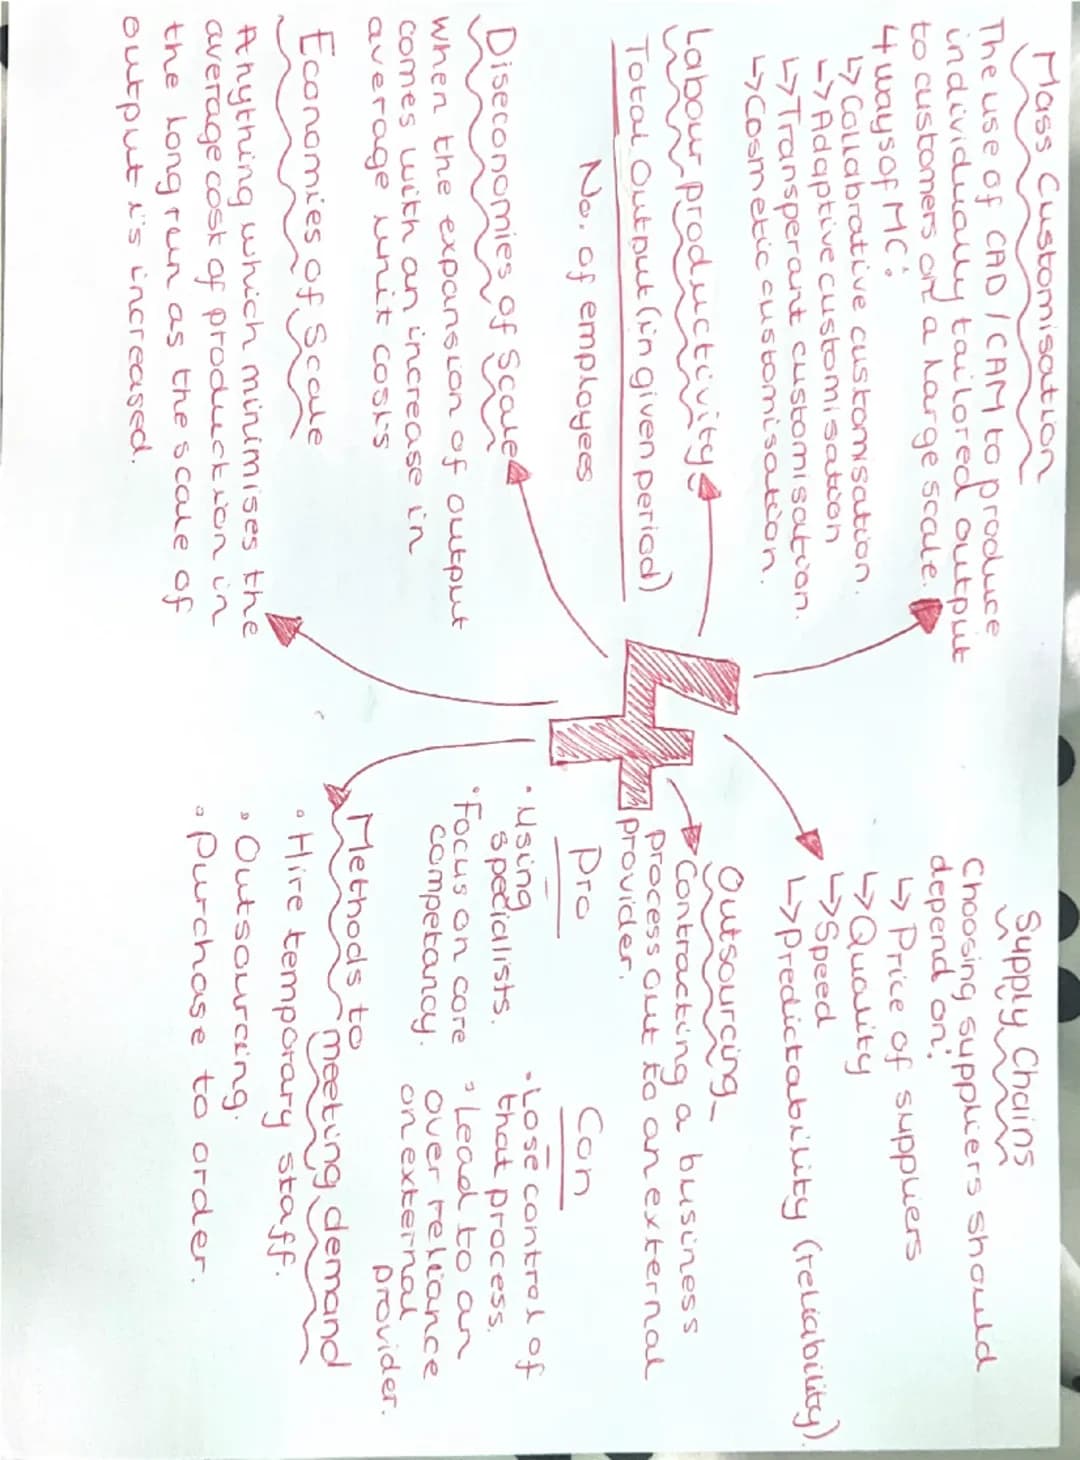 Mass Customisation
The use of CAD / CAM to produce
individually tailored output
to customers on a large scale.
4 ways of MC:
↳ Collabrative customisation.
↳ Adaptive customisation
↳ Transperant customisation.
↳ Cosmetic customisation.
Labour productivity
Total Output (in given period)
No. of employees
Diseconomies of Scale
when the expansion of output
comes with an increase in
average unit costs
Economies of Scale
Anything which minimises the
average cost of production in
the long run as the scale of
output is increased.
4
Supply Chains
Choosing suppliers should
depend on:
↳ Price of suppliers
↳ Quality
↳ Speed
↳ Predictability (reliability).
Outsourcing
Contracting a business
process out to an external
provider.
Pro
• Using
specialists.
• Focus on core
competancy.
Con
• Lose control of
that process.
• Lead to an
over reliance
on external
provider.
Methods to meeting demand
• Hire temporary staff.
• Outsourcing.
• Purchase to order.